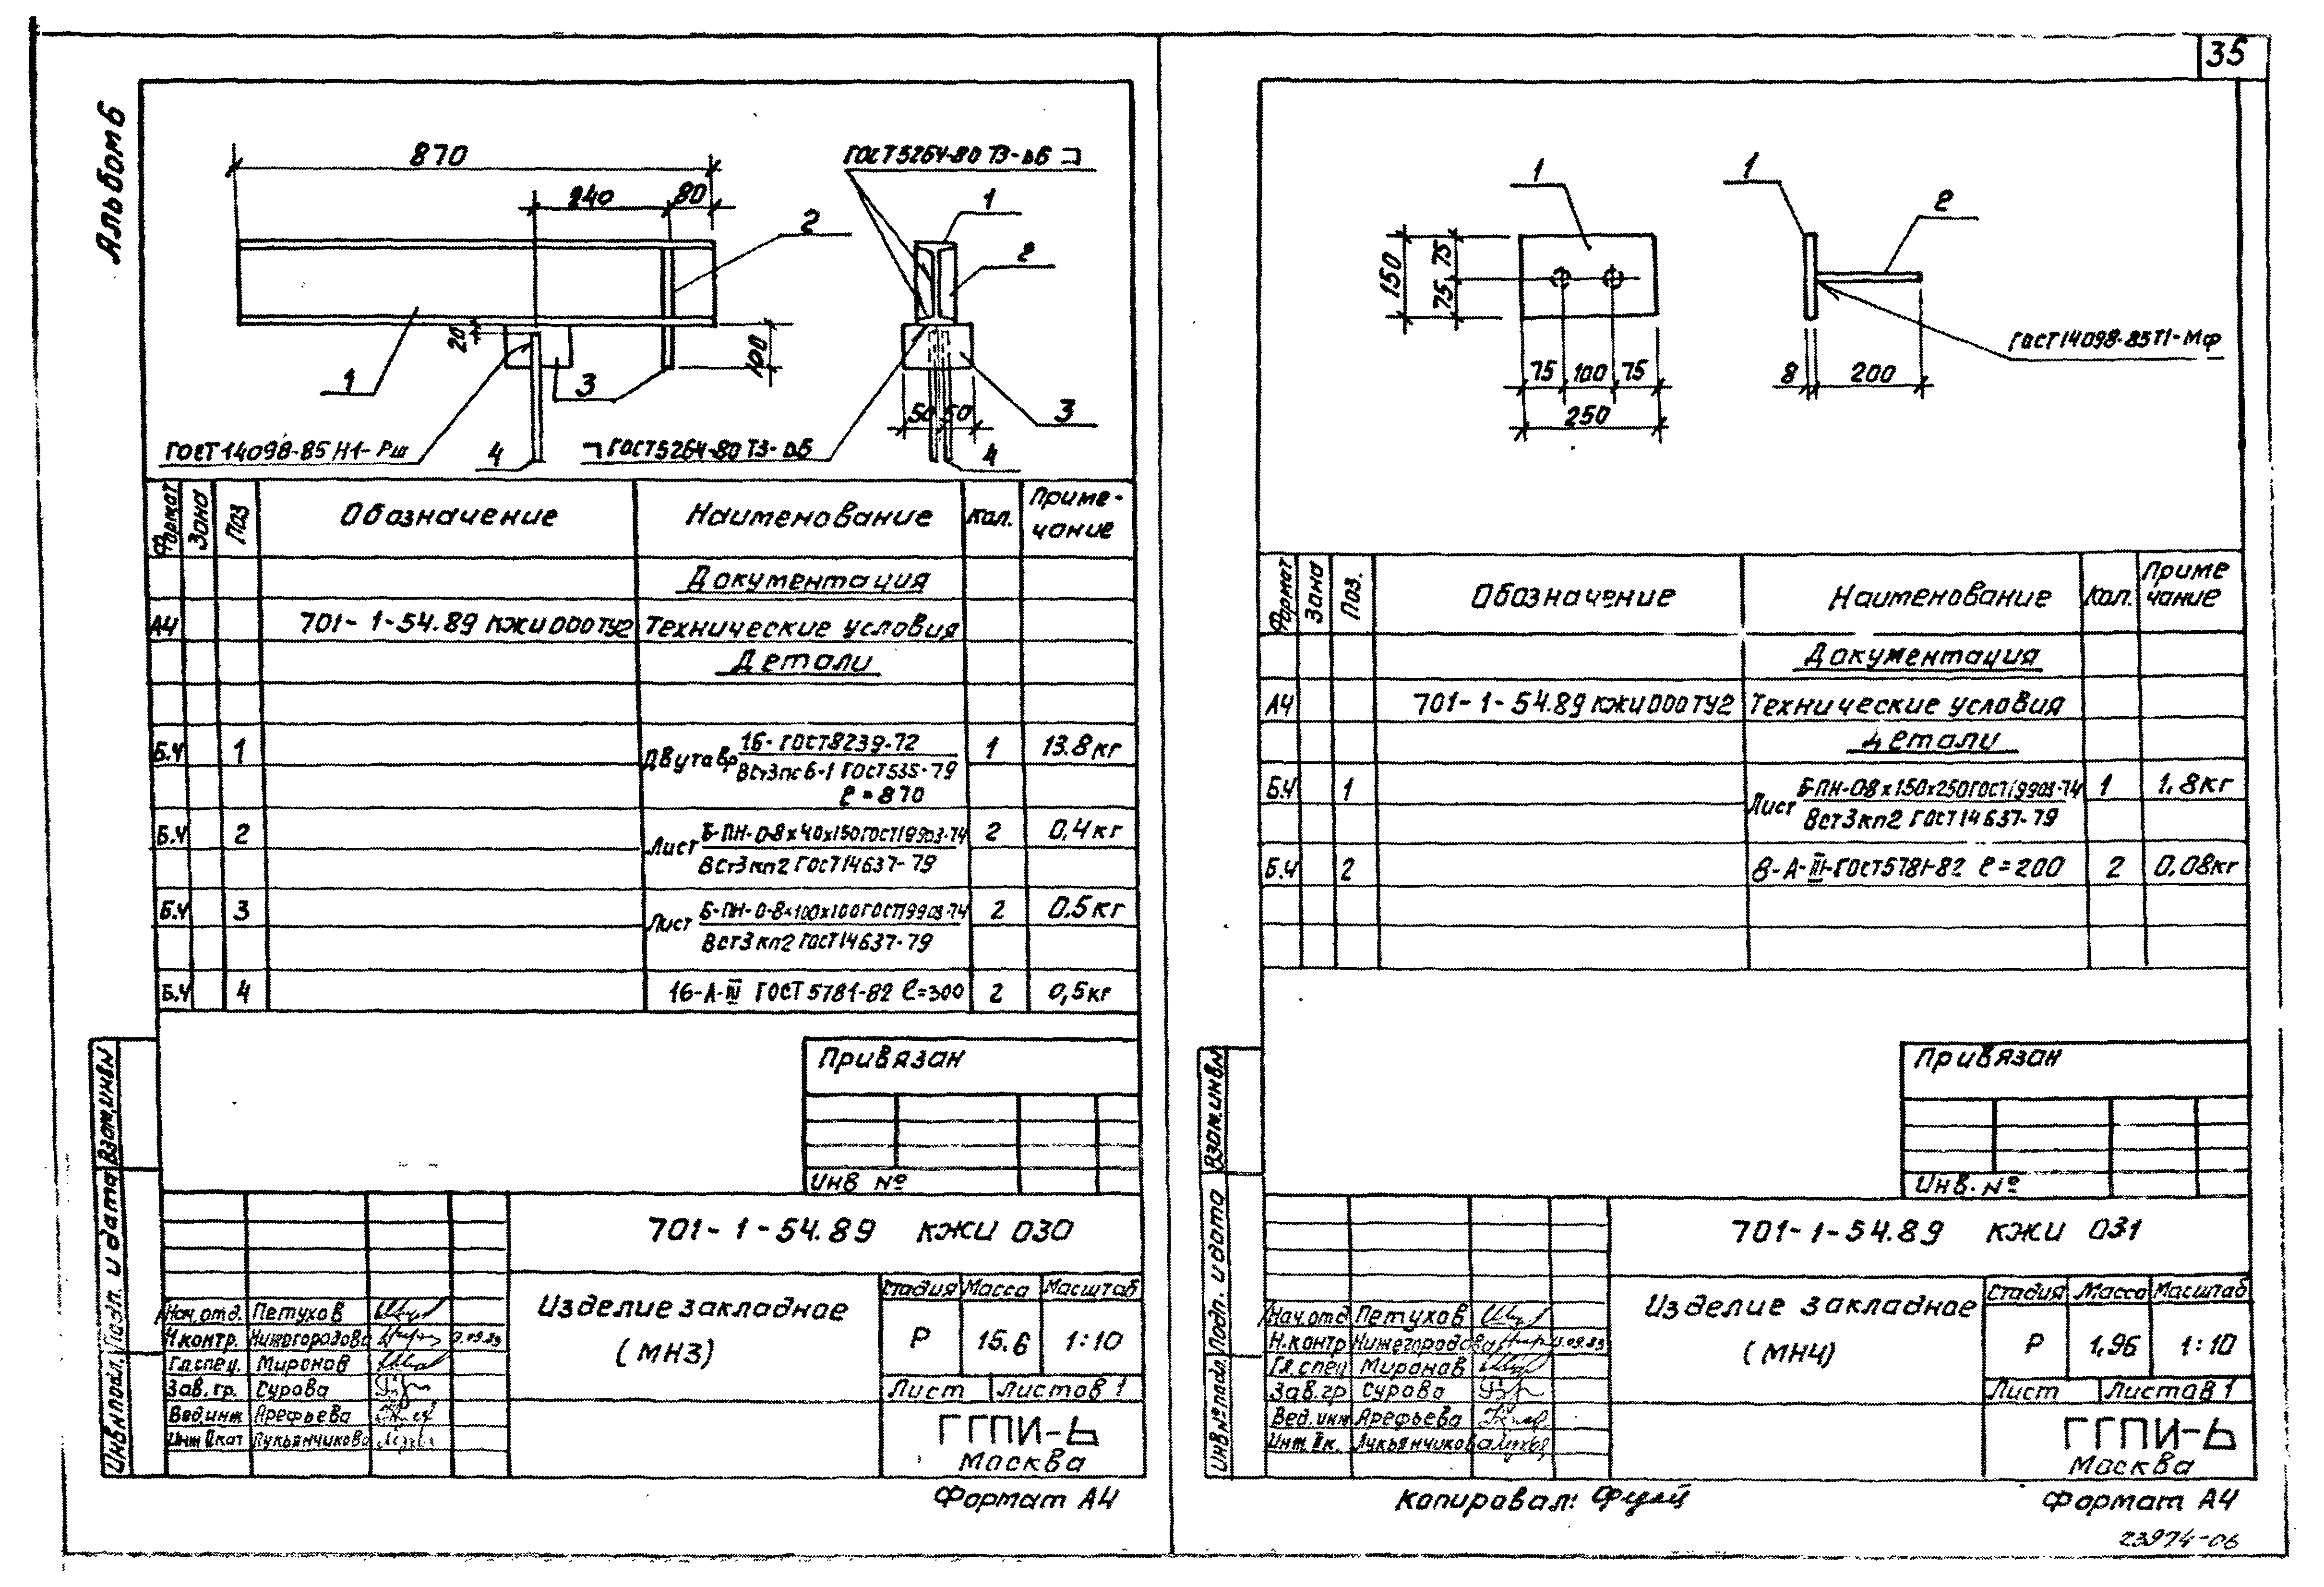 35
Альбом 6
870
240
80
2
20
100
1
3
4
ГОСТ 14098-85 Н1-Рш
ГОСТ 5264-80 Т3-∆6
1
2
50 50
3
4
ГОСТ 5264-80 Т3-∆6
Формат Зона Поз Обозначение Наименование Кол. Приме-
чание
Документация
А4 701-1-54.89 КЖИ 000 ТУ2 Технические условия
Детали
Б.Ч 1 Двутавр 16-ГОСТ 8239-72 1 13.8 кг
ВСт3пс6-1 ГОСТ 535-79
ℓ=870
Б.Ч 2 Лист Б-ПН-0-8х40х150 ГОСТ 19903-74 2 0,4 кг
ВСт3кп2 ГОСТ 14637-79
Б.Ч 3 Лист Б-ПН-0-8х100х100 ГОСТ 19903-74 2 0.5 кг
ВСт3кп2 ГОСТ 14637-79
Б.Ч 4 16-А-IV ГОСТ 5781-82 ℓ=300 2 0,5 кг
Привязан
Инв №
701-1-54.89 КЖИ 030
Изделие закладное
(МН3)
Стадия Масса Масштаб
Р 15.6 1:10
Лист Листов 1
ГГПИ-6
Москва
Нач.отд. Петухов
Н.контр. Нижегородова
Гл.спец. Миронов
Зав.гр. Сурова
Вед.инж Арефьева
Инж II кат Лукьянчикова
Инв№подл. Подп. и дата Взам.инв№
Формат А4
1
150
75 75
75 100 75
250
1
2
8 200
ГОСТ 14098-85 Т1-Мф
Формат Зона Поз. Обозначение Наименование Кол. Приме
чание
Документация
А4 701-1-54.89 КЖИ 000 ТУ2 Технические условия
Детали
Б.Ч 1 Лист Б-ПН-0-8х150х250 ГОСТ 19903-74 1 1,8 кг
ВСт3кп2 ГОСТ 14637-79
Б.Ч 2 8-А-III-ГОСТ 5781-82 ℓ=200 2 0,08 кг
Привязан
Инв. №
701-1-54.89 КЖИ 031
Изделие закладное
(МН4)
Стадия Масса Масштаб
Р 1,96 1:10
Лист Листов 1
ГГПИ-6
Москва
Нач.отд Петухов
Н.контр Нижегородова
Гл.спец Миронов
Зав.гр Сурова
Вед.инж Арефьева
Инж.II к. Лукьянчикова
Инв№подл. Подп. и дата Взам.инв№
Копировал:
Формат А4
23974-06